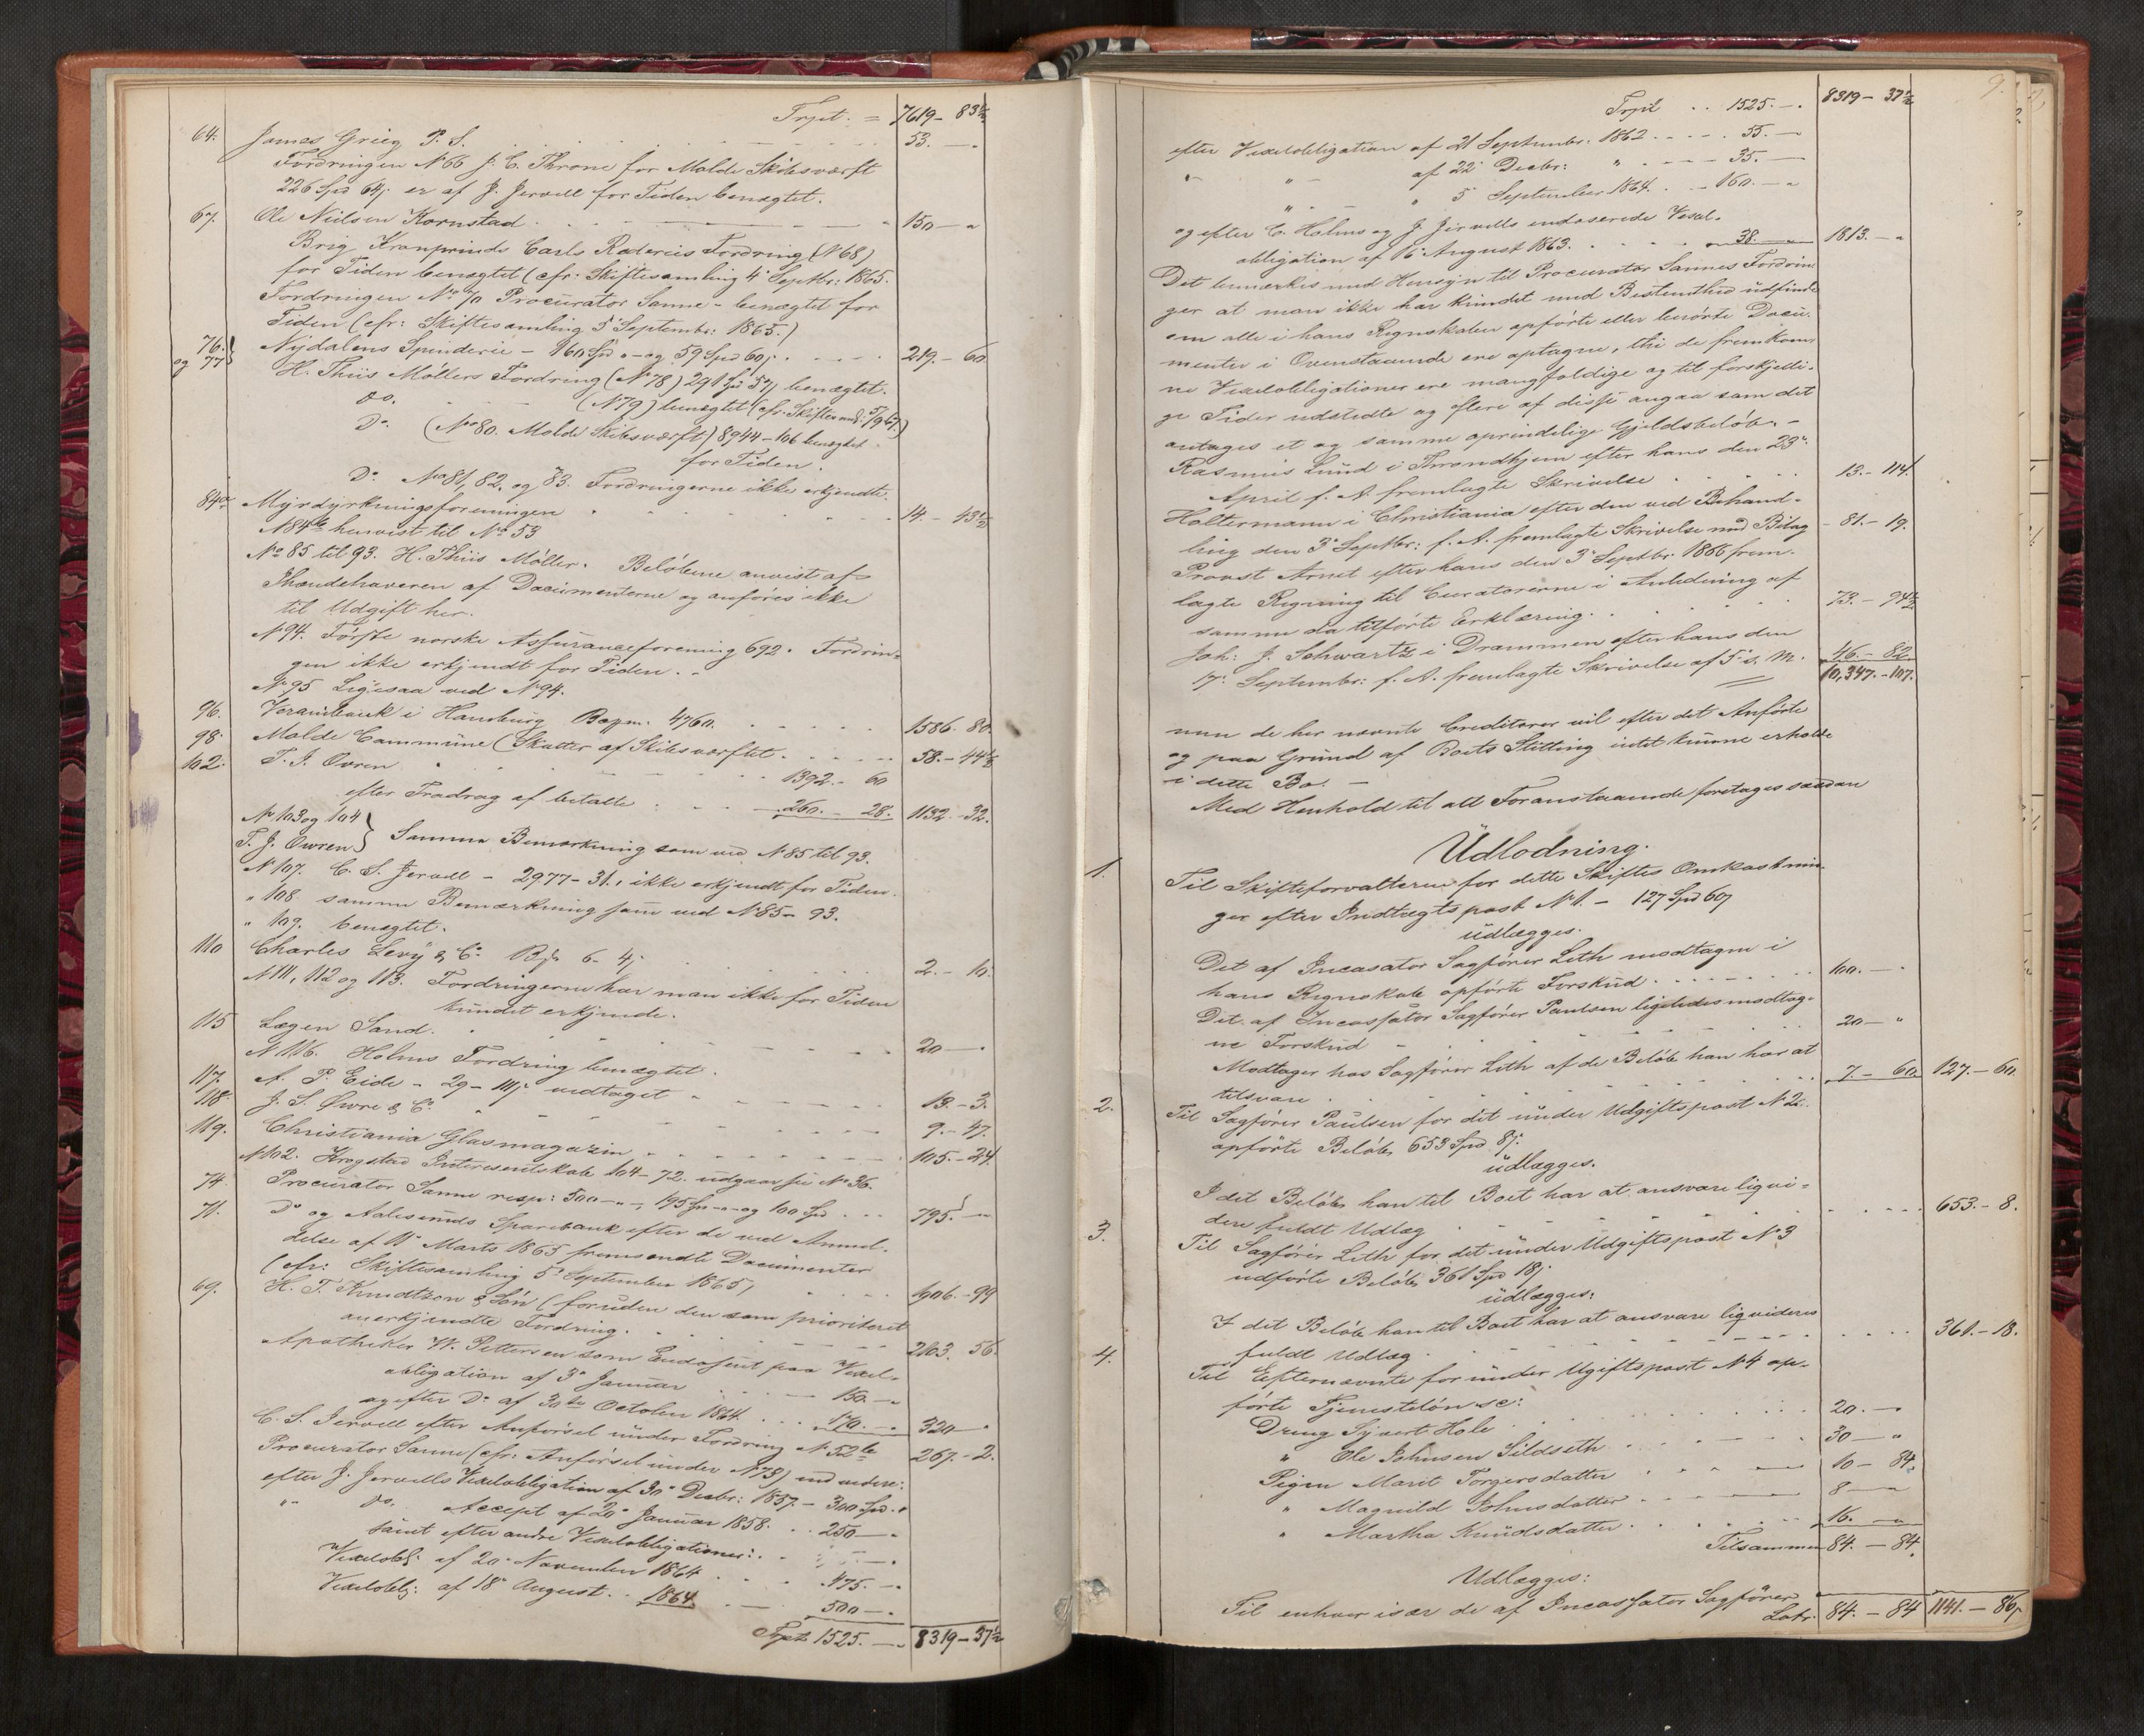 Trpt. = 7619 - 83½
64. James Grieg P. S. 53. -
Fordringen N° 66 J. C. Throne for Molde Skibsværft
226 Spd 64 ß er af J. Jervell for Tiden benægtet.
67. Ole Nielsen Kornstad 150 - "
Brig Kronprinds Carls Rederies Fordring (N 68)
for Tiden benægtet (cfr: Skiftesamling 4de Septbr: 1865.
Fordringen N° 70 Procurator Sanne - benægtet for
Tiden (cfr: Skiftesamling 5' Septembr: 1865.)
76. og 77 } Nydalens Spinderie - 160 Spd " - og 59 Spd 60 ß. 219. - 60
H. Thiis Møllers Fordring (N° 78) 291 Spd 57 ß benægtet.
do. (N 79) benægtet (cfr. Skiftesaml: 5/9 65.)
D° (N° 80. Molde Skibsværft) 8944 - 106 benægtet
for Tiden.
D° N° 81, 82, og 83. Fordringerne ikke erkjendte.
84a Myrdyrkningsforeningen 14. - 43½
N 84b henvist til N° 53
N° 85 til 93. H. Thiis Møller. Beløbene anvist af
Ihændehaveren af Documenterne og anføres ikke
til Udgift her.
N° 94. Første norske Assuranceforening 692. Fordrin-
gen ikke erkjendt for Tiden. -
N° 95 Ligesaa ved N° 94.
96. Vereinsbank i Hamburg 4760. 1586. 80.
98. Molde Commune (Skatter af Skibsværftet. 58. - 44½
102. T. J. Owren 1392. - 60
efter Fradrag af betalte 260. - 28. 1132. - 32.
N° 103 og 104
T. J. Owren } Samme Bemærkning som ved N 85 til 93.
N 107. C. S. Jervell - 2977 - 31., ikke erkjendt for Tiden.
" 108 samme Bemærkning som ved N 85 - 93.
" 109. benægtet.
110 Charles Levy & C° 6. 4 ß 2. - 10.
N 111, 112 og 113. Fordringerne har man ikke for Tiden
kundet erkjende.
115 Lægen Sand. 20 - "
N 116. Holms Fordring benægtet.
117. A. P. Eide - 29 - 111 ß. vedtaget 13. - 3.
118. J. S. Øwre & C° 9. - 47.
119. Christiania Glasmagazin 105. - 24.
N 102. Krogstad Interesentskab 104 - 72. udgaar se N° 36.
74. Procurator Sanne resp: 500 - " -, 195 Sp - " - og 100 Spd 795. - "
71. D° og Aalesunds Sparebank efter de ved Anmel-
delse af 11' Marts 1865 fremsendte Documenter
(cfr: Skiftesamling 5' September 1865) 1906. - 99
69. H. T. Knudtzon & Søn (foruden den som prioriteret
anerkjendte Fordring. 2163. 56.
Apotheker W. Pettersen som Endosent paa Vexel-
obligation af 3' Januar 150. - "
og efter D° af 30te October 1864 170. - " 320 - "
C. S. Jervell efter Anførsel under Fordring N. 52b 267. - 2.
Procurator Sanne (cfr: Anførsel under N 73) endvidere:
efter J. Jervells Vexelobligation af 30' Decbr: 1857. - 300 Spd. "
" do. Accept af 20' Januar 1858. 250 - "
samt efter andre Vexelobligationer:
Vexelobl: af 20' November 1864 475. - "
Vexelobl: af 18' August. 1864. 500 - "
Trpt 1525. - " 8319 - 37½
9.
Trpt 1525. - " 8319 - 37½
efter Vexelobligation af 21 Septembr. 1862 55. - "
" - " - af 22' Decbr: " 35. -
" - " 5 September 1864. 160. - "
og efter C. Holms og J. Jervells endoserede Vexel-
obligation af 16' August 1863. 38. - " 1813. - "
Det bemærkes med Hensyn til Procurator Sannes Fordrin
ger at man ikke har kundet med Bestemthed udfinde
om alle i hans Regnskaber opførte eller berørte Docu-
menter i Ovenstaaende ere optagne, thi de fremkom-
ne Vexelobligationer ere mangfoldige og til forskjelli-
ge Tider udstedte og flere af disse angaa som det
antages et og samme oprindelige Gjeldsbeløb. -
Rasmus Lund i Throndhjem efter hans den 23de
April f. A. fremlagte Skrivelse 13. - 114.
Holtermann i Christiania efter den ved Behand-
ling den 3' Septbr: f. A. fremlagte Skrivelse med Bilag - 81. - 19.
Provst Arnet efter hans den 3' Septbr. 1866 frem-
lagte Regning til Curatorerne i Anledning af
samme da tilførte Erklæring. 73. - 94½
Joh: J. Schwartz i Drammen efter hans den
17' Septembr: f. A. fremlagte Skrivelse af 5' s. M. 46. - 82.
10,347. - 107.
men de her nævnte Creditorer vil efter det Anførte
og paa Grund af Boets Stilling intet kunne erholde
i dette Bo. -
Med Henhold til alt Foranstaaende foretages saadan
Udlodning.
1. Til Skifteforvalteren for dette Skiftes Omkostnin-
ger efter Indtægtspost N 1. - 127 Spd 60 ß
udlægges.
Det af Incasator Sagfører Leth modtagne i
hans Regnskab opførte Forskud 100. - "
Det af Incassator Sagfører Paulsen ligeledes modtag-
ne Forskud 20 - "
Modtager hos Sagfører Leth af de Beløb han har at
tilsvare 7. - 60. 127. - 60.
2. Til Sagfører Paulsen for det under Udgiftspost N 2.
opførte Beløb, 653 Spd 8 ß.
udlægges.
I det Beløb, han til Boet har at ansvare liqvi-
dere fuldt Udlæg 653. - 8.
3. Til Sagfører Leth for det under Udgiftspost N 3
udførte Beløb, 361 Spd 18 ß
udlægges:
I det Beløb han til Boet har at ansvare liqvideres
fuldt Udlæg 361. - 18.
4. Til Efternævnte for under Ugiftspost N 4 op-
førte Tjenesteløn sc:
Dreng Sivert Hole 20. - "
" Ole Johnsen Sildseth 30 - "
Pigen Marit Torgersdatter 10 - 84.
" Magnild Johnsdatter 8 - "
" Martha Knudsdatter 16. - "
Tilsammen 84. - 84.
Udlægges:
Til enhver især de af Incassator Sagfører
Latr: 84. - 84 1141. - 86 ß